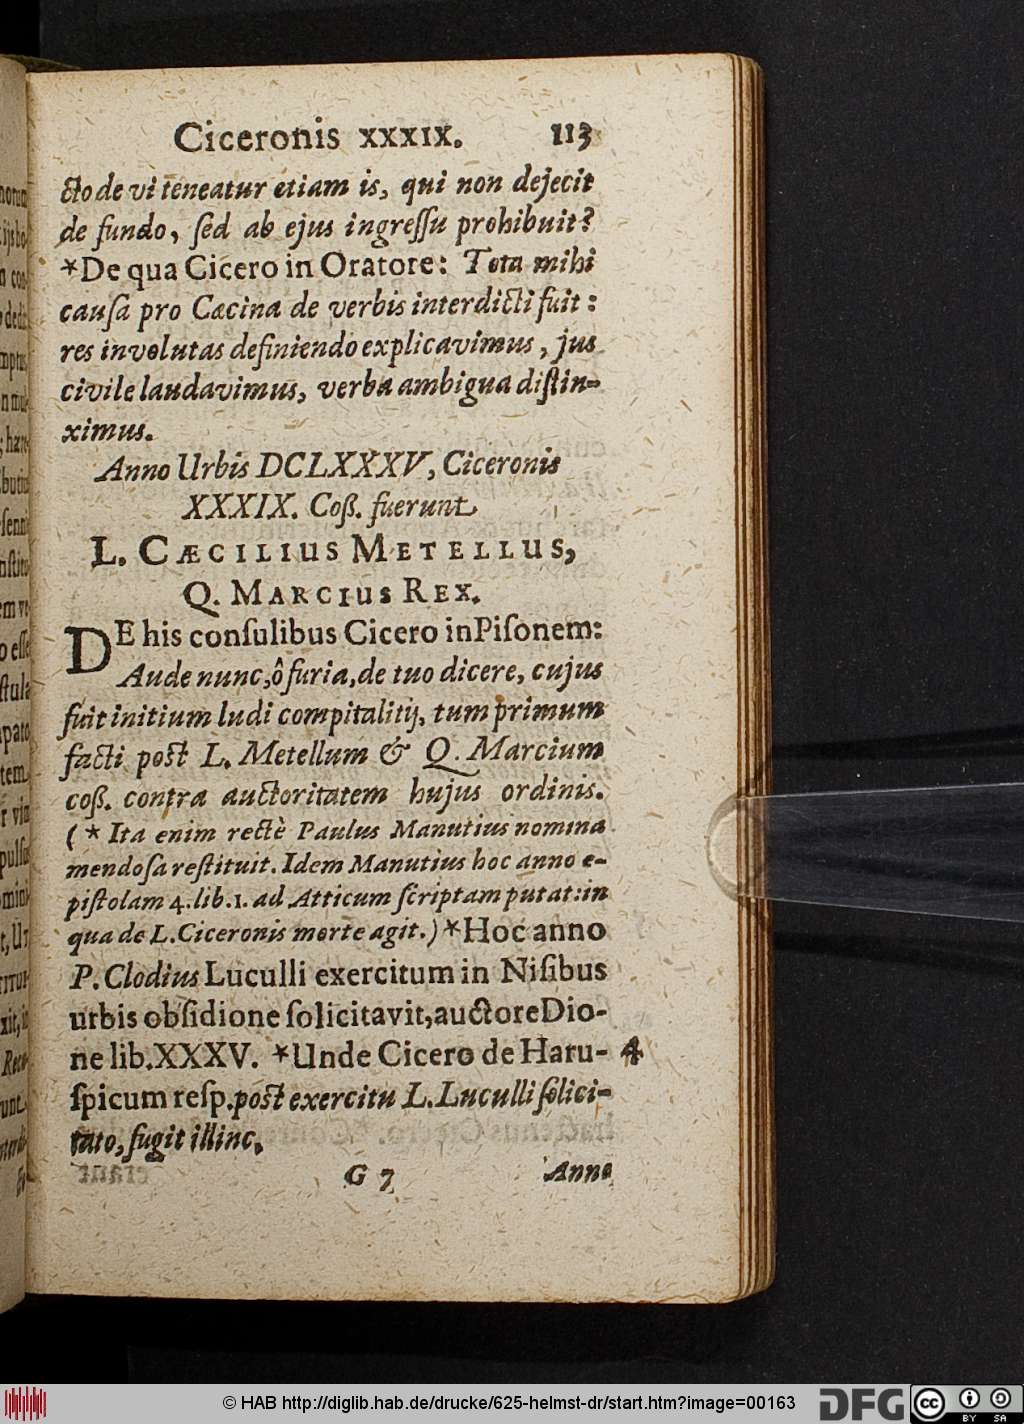 Ciceronis XXXIX. 113
cto de vi teneatur etiam is, qui non dejecit
de fundo, ſed ab ejus ingreſſu prohibuit?
*De qua Cicero in Oratore: Tota mihi
cauſa pro Cæcina de verbis interdicti fuit:
res involutas definiendo explicavimus, jus
civile laudavimus, verba ambigua diſtin-
ximus.
Anno Urbis DCLXXXV, Ciceronis
XXXIX. Coß. fuerunt
L. CÆCILIUS METELLUS,
Q. MARCIUS REX.
DE his conſulibus Cicero in Piſonem:
Aude nunc, ô furia, de tuo dicere, cujus
fuit initium ludi compitalitij, tum primum
facti post L. Metellum & Q. Marcium
coß. contra auctoritatem hujus ordinis.
(* Ita enim rectè Paulus Manutius nomina
mendoſa reſtituit. Idem Manutius hoc anno e-
piſtolam 4. lib. 1. ad Atticum ſcriptam putat: in
qua de L. Ciceronis morte agit.) *Hoc anno
P. Clodius Luculli exercitum in Niſibus
urbis obſidione ſolicitavit, auctore Dio-
ne lib. XXXV. *Unde Cicero de Haru- 4
ſpicum reſp. post exercitu L. Luculli ſolici-
tato, fugit illinc.
G 7 Anno
© HAB http://diglib.hab.de/drucke/625-helmst-dr/start.htm?image=00163
DFG
cc
BY SA